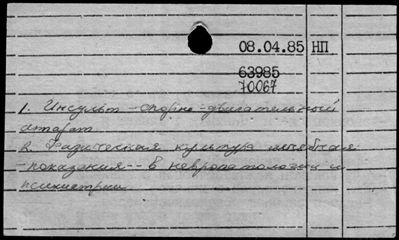 08.04.85 НП
63985
70067
1. Инсульт - опорно-двигательный
аппарат
2. Физическая культура лечебная
- показания - в невропатологии и
психиатрии